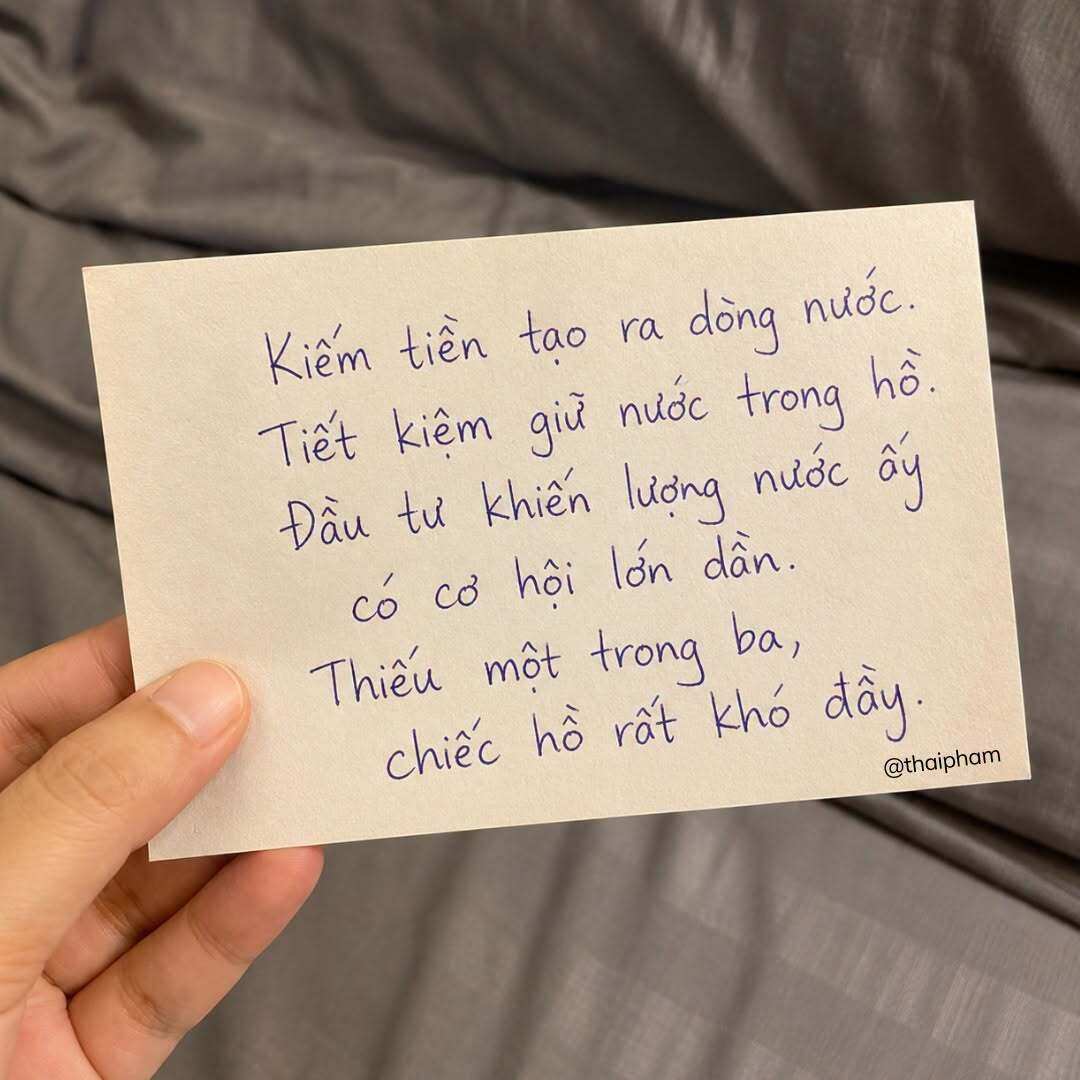 Kiếm tiền tạo ra dòng nước.
Tiết kiệm giữ nước trong hồ.
Đầu tư khiến lượng nước ấy
có cơ hội lớn dần.
Thiếu một trong ba,
chiếc hồ rất khó đầy.
@thaipham